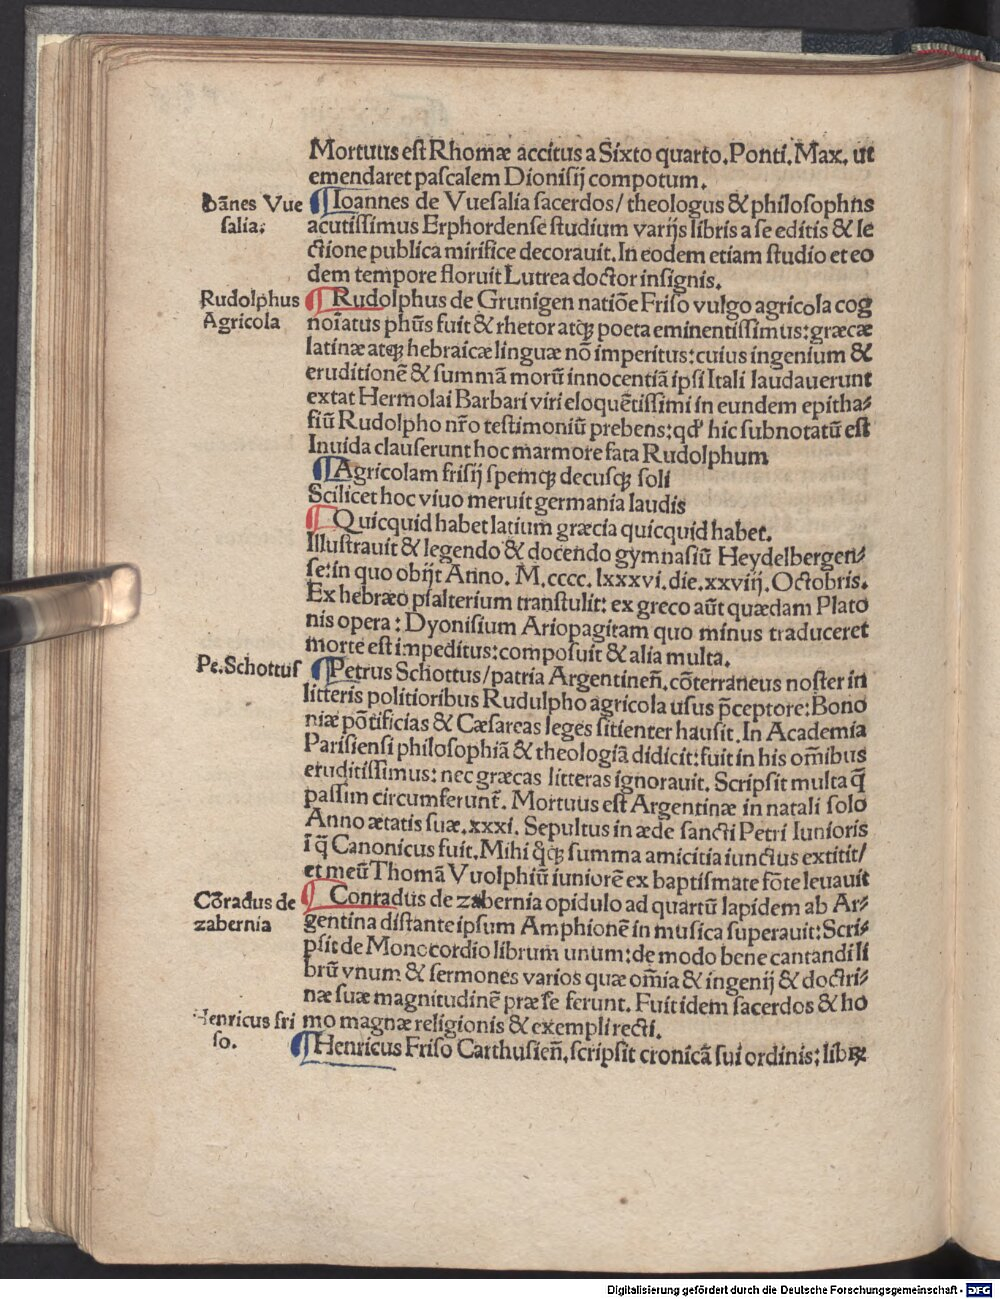 Mortuus est Rhomæ accitus a Sixto quarto. Ponti. Max. ut
emendaret pascalem Dionisij compotum.
Ioannes de Vuesalia sacerdos/ theologus & philosophns
acutissimus Erphordense studium varijs libris a se editis & le
ctione publica mirifice decorauit. In eodem etiam studio et eo
dem tempore floruit Lutrea doctor insignis.
Rudolphus de Grunigen natiõe Friso vulgo agricola cog
noĩatus phũs fuit & rhetor atqꝫ poeta eminentissimus: græcæ
latinæ atqꝫ hebraicæ linguæ nõ imperitus: cuius ingenium &
eruditionẽ & summã morũ innocentiã ipsi Itali laudauerunt
extat Hermolai Barbari viri eloquẽtissimi in eundem epitha⸗
fiũ Rudolpho nr̃o testimoniũ prebens: qd' hic subnotatũ est
Inuida clauserunt hoc marmore fata Rudolphum
Agricolam frisij spemqꝫ decusqꝫ soli
Scilicet hoc viuo meruit germania laudis
Quicquid habet latium græcia quicquid habet.
Illustrauit & legendo & docendo gymnasiũ Heydelbergen⸗
se: in quo obijt Anno. M. cccc. lxxxvi. die. xxviij. Octobris.
Ex hebræo psalterium transtulit: ex greco aũt quædam Plato
nis opera: Dyonisium Ariopagitam quo minus traduceret
morte est impeditus: composuit & alia multa.
Petrus Schottus/ patria Argentineñ. cõterraneus noster in
litteris politioribus Rudulpho agricola usus p̃ceptore: Bono
niæ põtificias & Cæsareas leges sitienter hausit. In Academia
Parisiensi philosophiã & theologiã didicit: fuit in his om̃ibus
eruditissimus: nec græcas litteras ignorauit. Scripsit multa q̃
passim circumferunt̃. Mortuus est Argentinæ in natali solo
Anno ætatis suæ. xxxi. Sepultus in æde sancti Petri Iunioris
ĩ q̃ Canonicus fuit. Mihi q̃qꝫ summa amicitia iunctus extitit/
et meũ Thomã Vuolphiũ iuniorẽ ex baptismate fõte leuauit
Conradus de zabernia opidulo ad quartũ lapidem ab Ar⸗
gentina distante ipsum Amphionẽ in musica superauit: Scri⸗
psit de Monocordio librum unum: de modo bene cantandi li
brũ vnum & sermones varios quæ om̃ia & ingenij & doctri⸗
næ suæ magnitudinẽ præ se ferunt. Fuit idem sacerdos & ho
mo magnæ religionis & exempli recti.
Henricus Friso Carthusieñ. scripsit cronicã sui ordinis: libꝝ
Ioãnes Vue
salia.
Rudolphus
Agricola
Pe. Schottus
Cõradus de
zabernia
Henricus fri
so.
Digitalisierung gefördert durch die Deutsche Forschungsgemeinschaft - DFG